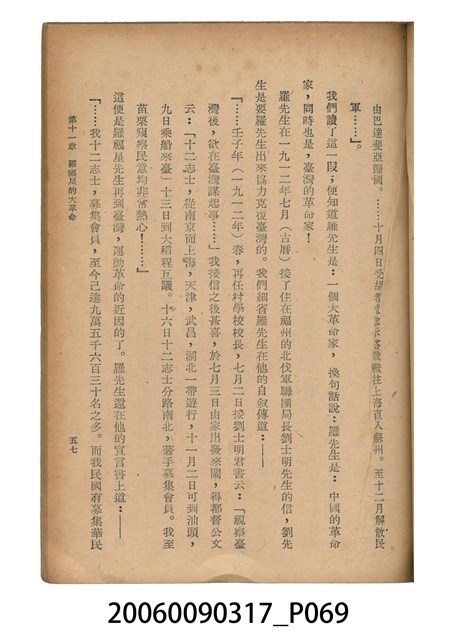 由巴達斐亞歸國。……十月四日受
往上海直入蘇州。至十二月解散民
軍……」。
我們讀了這一段，便知道羅先生是：一個大革命家，換句話說：羅先生是：中國的革命
家，同時也是，臺灣的革命家！
羅先生在一九一二年七月（古曆）接了住在福州的北伐軍聯團局長劉士明先生的信，劉先
生是要羅先生出來協力克復臺灣的。我們細省羅先生在他的自敘傳道：——
「……壬子年（一九一二年）春，再任村學校校長，七月二日接劉士明君書云：「視察臺
灣後，欲在臺灣謀起事……」我接信之後甚喜，於七月三日由家出發來閩，得都督公文
云：「十二志士，從南京而上海，天津，武昌，湖北一帶遊行，十一月二日可到汕頭，
九日乘船來臺一十三日到大稻程瓦議。十六日十二志士分路南北，着手募集會員。我至
苗栗窺察民意均非常熱心！……」
這便是羅福星先生再到臺灣，運動革命的近因的了。羅先生還在他的宣言書上道：——
「……我十二志士，募集會員，至今已達九萬五千六百三十名之多。而我民國有募集華民
第十一章　羅福星的大革命
五七
20060090317_P069